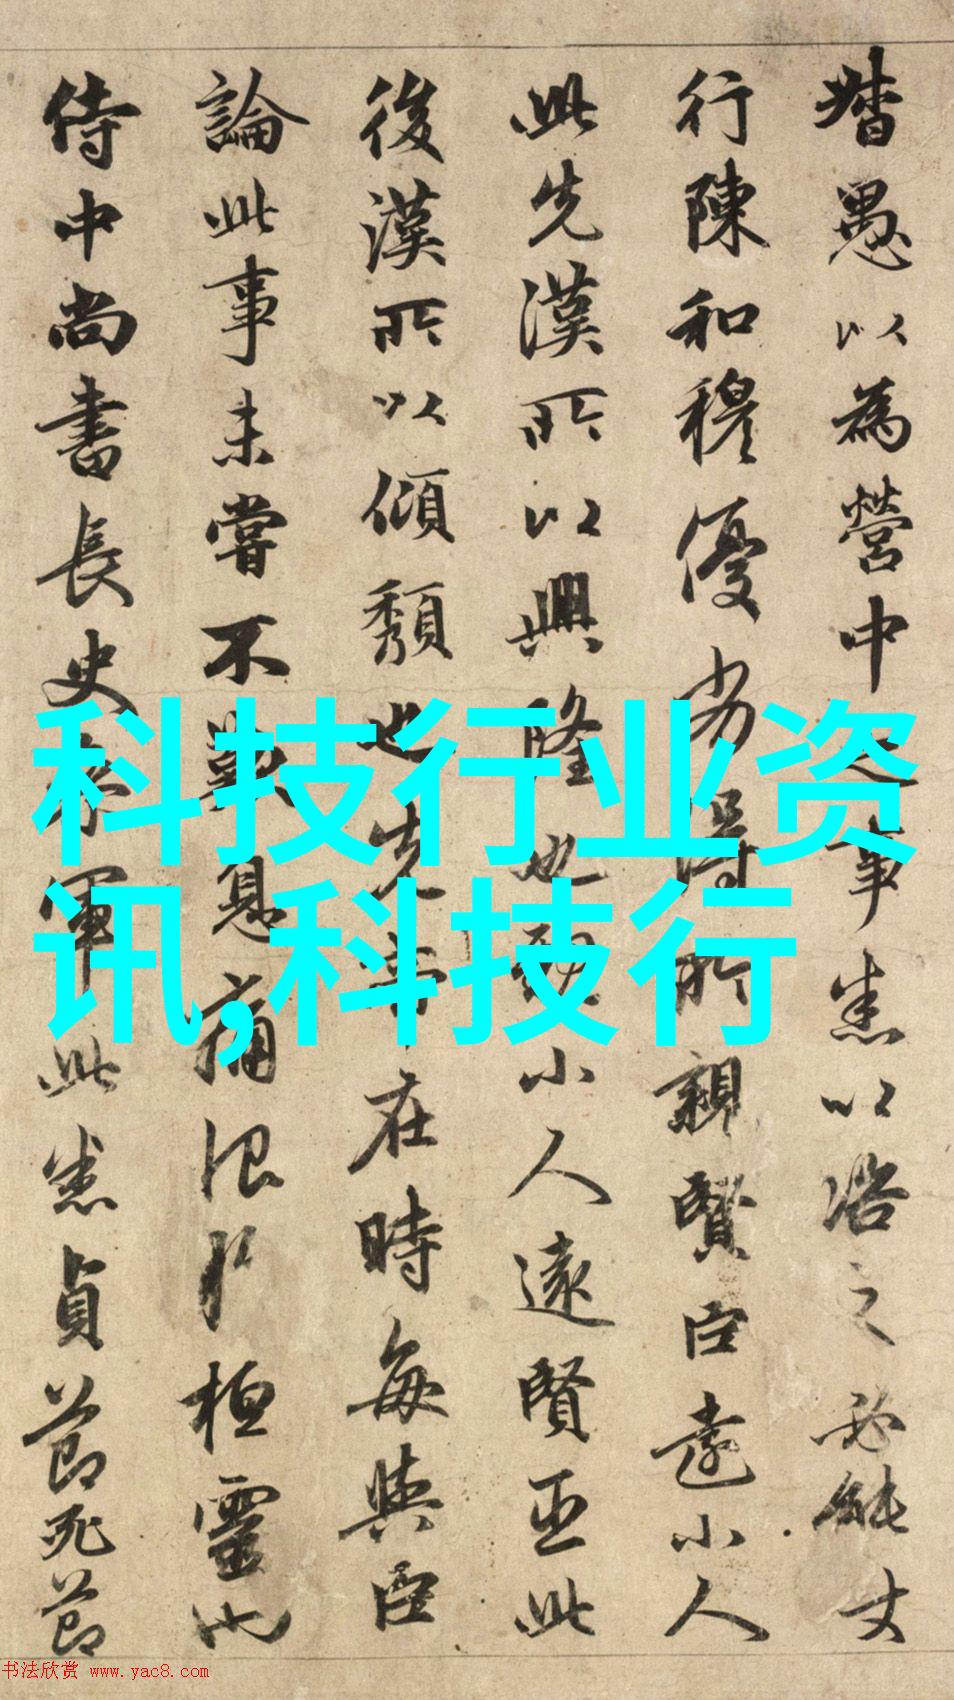 督愚以為營中之事悉以諮之必能
行陳和穆優劣得所親賢臣遠小人
此先漢所以興隆也親小人遠賢臣此
後漢所以傾頹也先帝在時每與臣
論此事未嘗不歎息痛恨於桓靈也
侍中尚書長史參軍此悉貞節死節
科技行业资
讯,科技行
书法欣赏 www.yac8.com